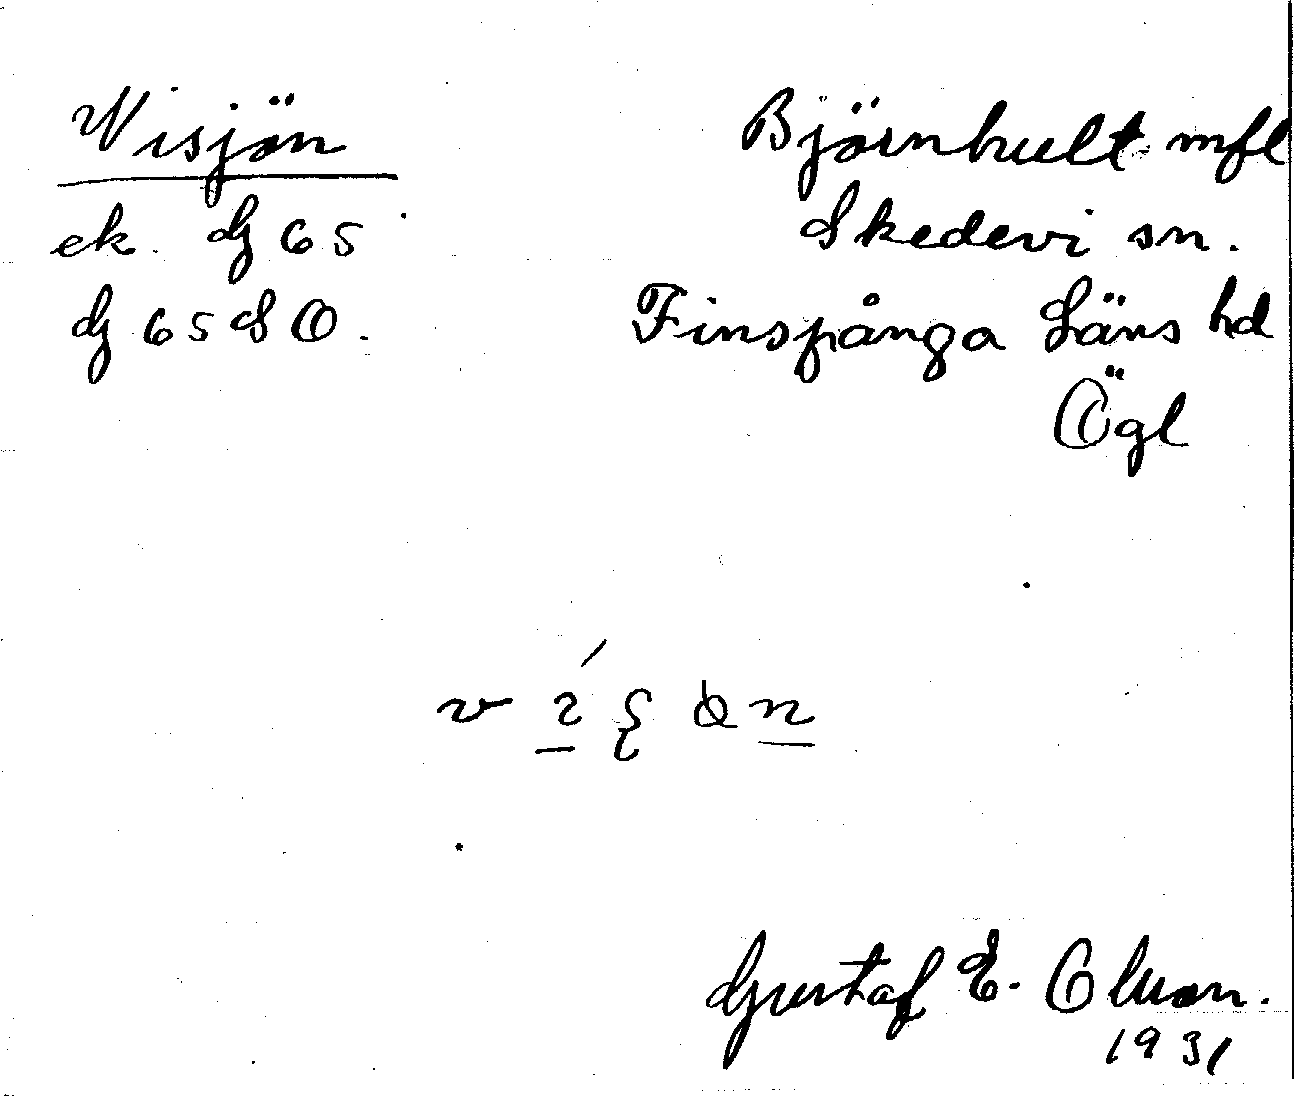 Visjön
Björnhult mfl
ek. dg 65
Skedevi sn.
dg 65 S O.
Finspånga Läns hd
Ögl
Gustaf E.
1931